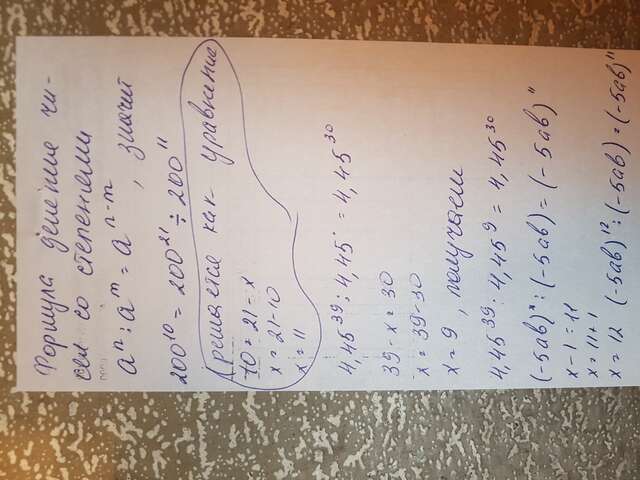 Формула деление чи-
сел со степенями
aⁿ : aᵐ = aⁿ⁻ᵐ , значит
200¹⁰ = 200²¹ ÷ 200¹¹
(решается как уравнение)
10 = 21 - x
x = 21-10
x = 11
4,45³⁹ : 4,45˙ = 4,45³⁰
39 - x = 30
x = 39-30
x = 9 , получаем
4,45³⁹ : 4,45⁹ = 4,45³⁰
(-5ab)ˣ : (-5ab) = (-5ab)¹¹
x - 1 = 11
x = 11+1
x = 12 (-5ab)¹² : (-5ab) = (-5ab)¹¹